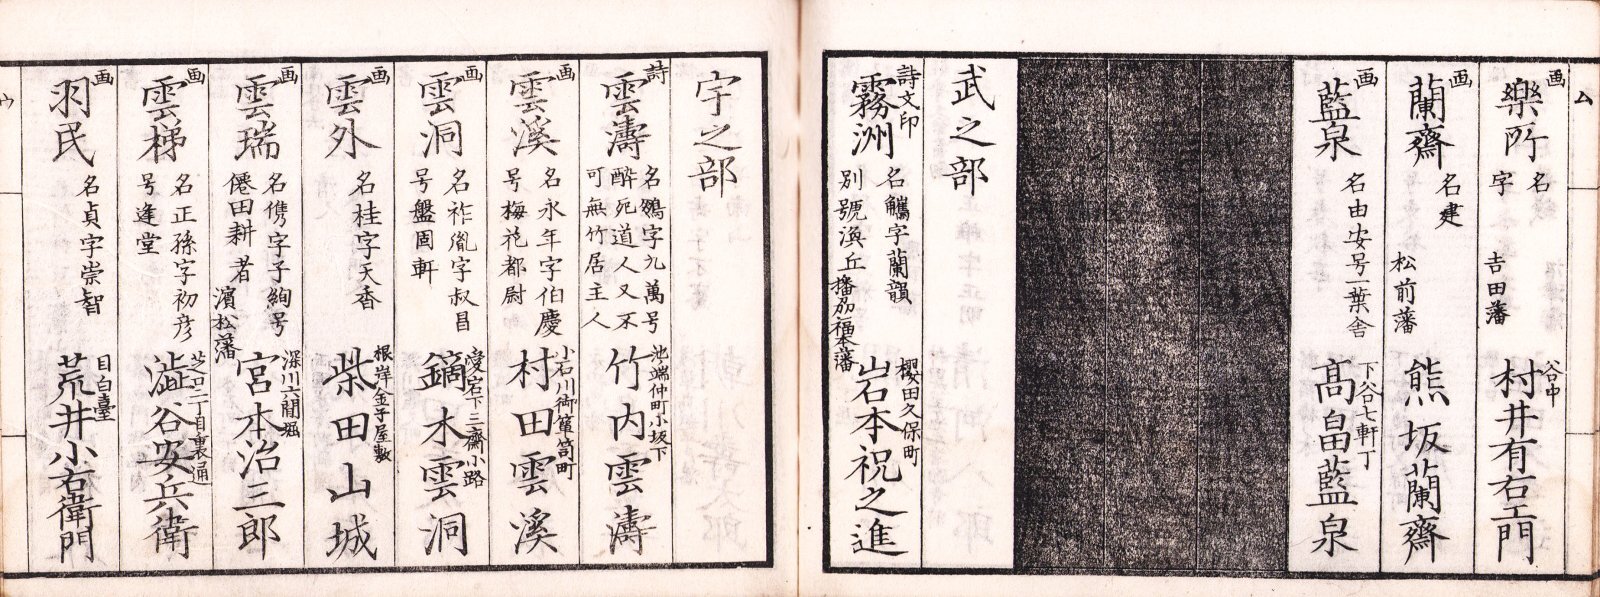 ム
画
樂所
名
字
吉田藩
谷中
村井有右エ門
画
蘭齋
名建
松前藩
熊坂蘭齋
画
藍泉
名由安号一葉舎
下谷七軒丁
髙畠藍泉
武之部
詩文印
霧洲
名觿字蘭韻
別號渙丘
播劦福本藩
櫻田久保町
岩本祝之進
宇之部
詩
雲濤
名鵕字九萬号
酔死道人又不
可無竹居主人
池端仲町小坂下
竹内雲濤
画
雲溪
名永年字伯慶
号梅花都尉
小石川御簞笥町
村田雲溪
画
雲洞
名祚胤字叔昌
号盤固軒
愛宕下三齋小路
鏑木雲洞
画
雲外
名桂字天香
根岸金子屋敷
柴田山城
画
雲瑞
名儁字子絢号
僊田耕者
濱松藩
深川六間堀
宮本治三郎
画
雲梯
名正孫字初彦
号逢堂
芝口二丁目裏通
澁谷安兵衛
画
羽民
名貞字崇智
目白臺
荒井小右衛門
ウ